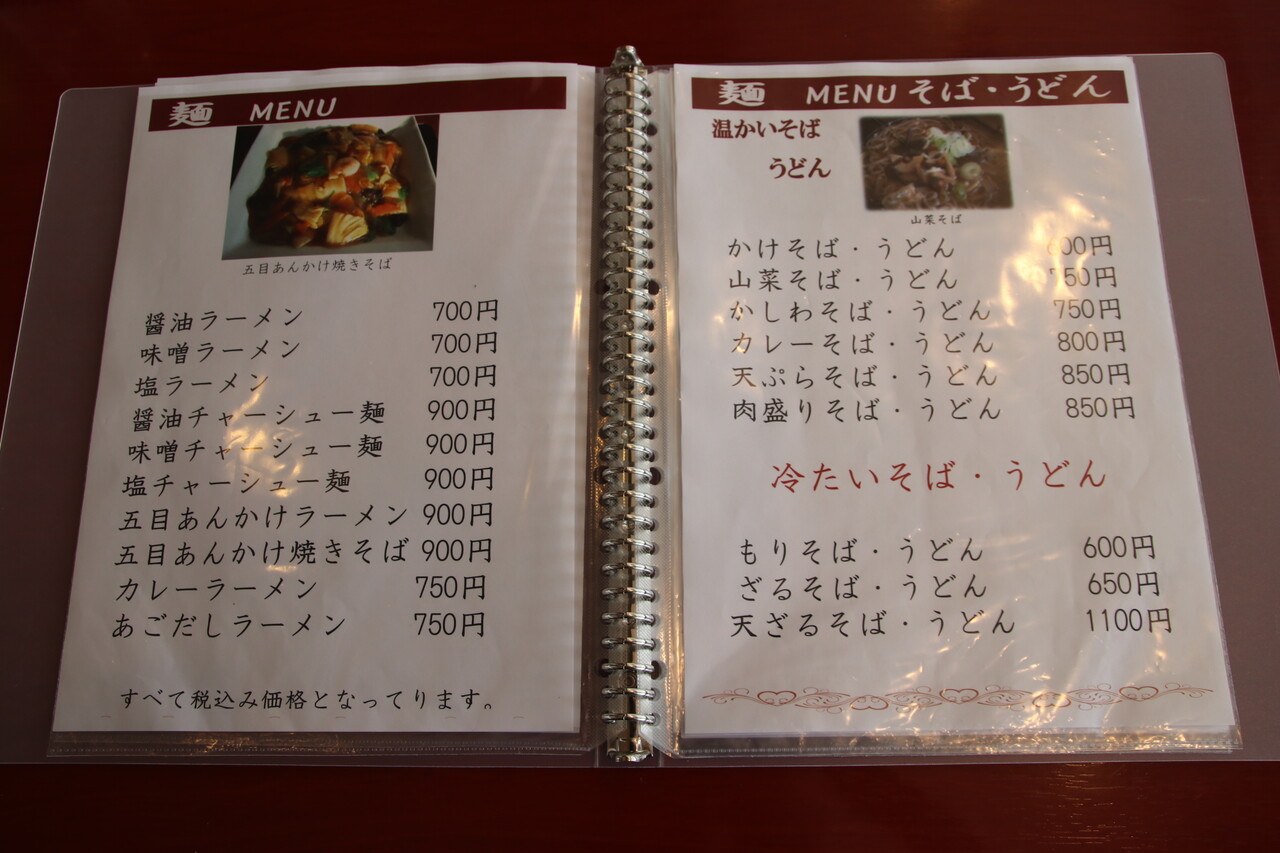 麺 MENU
五目あんかけ焼きそば
醤油ラーメン 700円
味噌ラーメン 700円
塩ラーメン 700円
醤油チャーシュー麺 900円
味噌チャーシュー麺 900円
塩チャーシュー麺 900円
五目あんかけラーメン 900円
五目あんかけ焼きそば 900円
カレーラーメン 750円
あごだしラーメン 750円
すべて税込み価格となってります。
麺 MENU そば・うどん
温かいそば
うどん
山菜そば
かけそば・うどん 600円
山菜そば・うどん 750円
かしわそば・うどん 750円
カレーそば・うどん 800円
天ぷらそば・うどん 850円
肉盛りそば・うどん 850円
冷たいそば・うどん
もりそば・うどん 600円
ざるそば・うどん 650円
天ざるそば・うどん 1100円